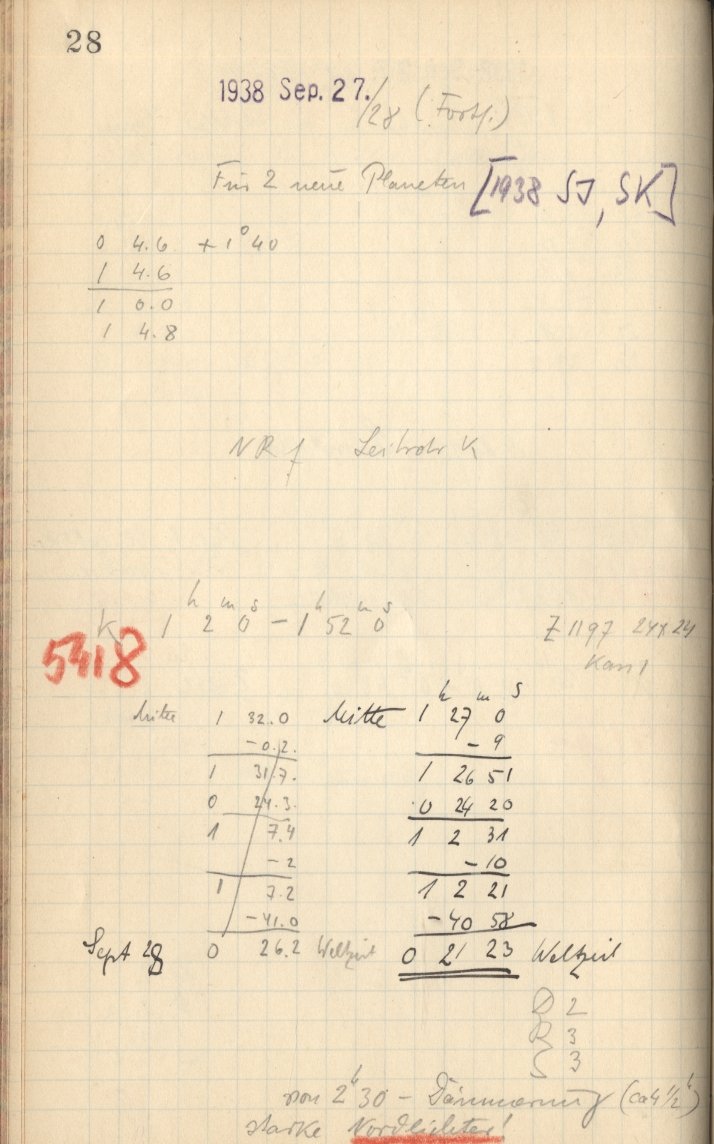 28
1938 Sep. 27./28 (Forts.)
Für 2 neue Planeten [1938 SJ, SK]
0 4.6 + 1° 40
1 4.6
1 0.0
1 4.8
NR f Leitrohr K
K 1 h 2 m 0 s – 1 h 52 m 0 s Z 1197 24x24
5418
Mitte 1 32.0 Mitte 1 h 27 m 0 s
-0.2. - 9
1 31.7. 1 26 51
0 24.3. 0 24 20
1 7.4 1 2 31
- 2 - 10
1 7.2 1 2 21
-41.0 -40 58
Sept 28 0 26.2 Weltzeit 0 21 23 Weltzeit
D 2
R 3
S 3
von 2h 30 – Dämmerung (ca 4 1/2 h)
starke Nordlichter!